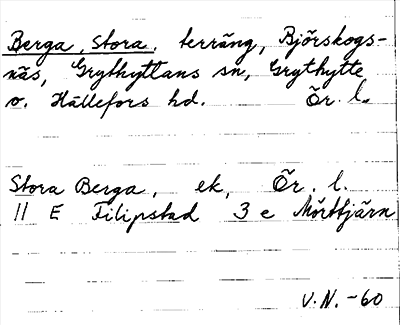 Berga, Stora, terräng, Björskogs-
näs, Grythyttans sn, Grythytte
o. Hällefors hd. Ör. l.
Stora Berga, ek, Ör. l.
11 E Filipstad 3 e Mörttjärn
V.N. -60